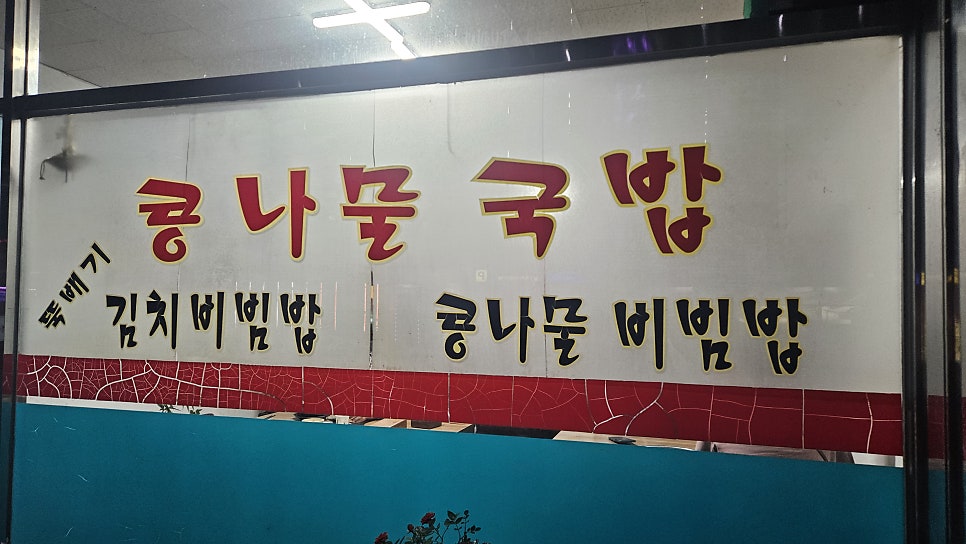 콩나물 국밥
뚝배기 김치비빔밥 콩나물 비빔밥